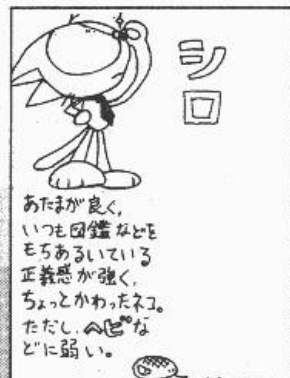 シロ
あたまが良く、
いつも図鑑などを
もちあるいている
正義感が強く、
ちょっとかわったネコ。
ただし、ヘビな
どに弱い。